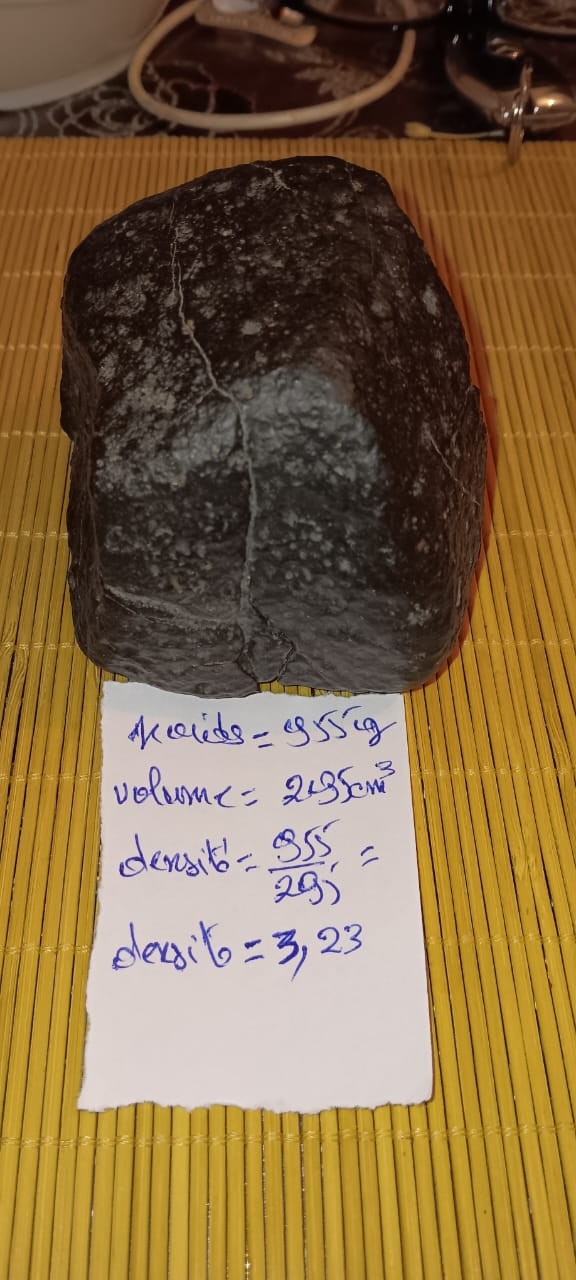 poids = 955g
volume = 295cm³
densité = 955/295 =
densité = 3,23